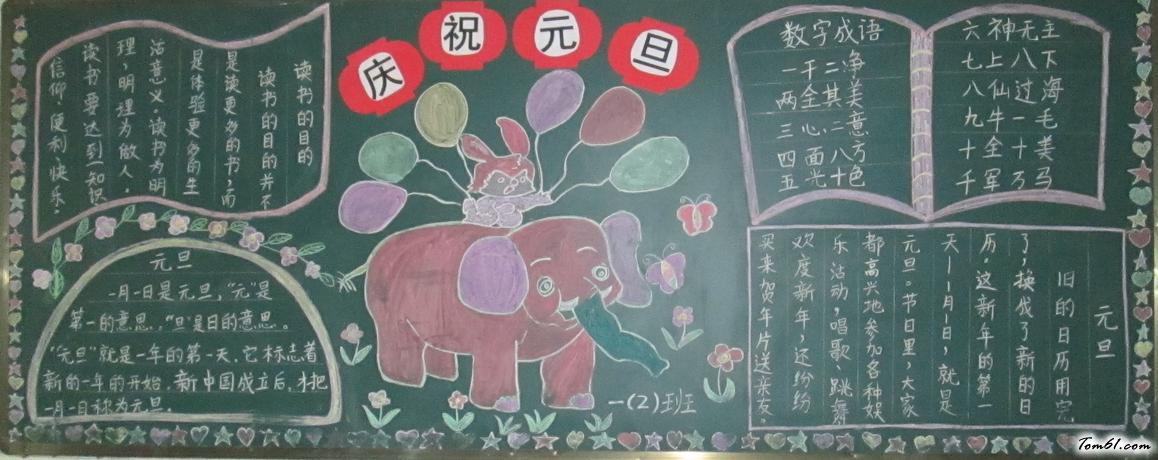 庆祝元旦
读书的目的
读书的目的并不
是读更多的书,而
是体验更多的生
活意义。读书为明
理,明理为做人。
读书要达到(知识
信仰,便利,快乐。
元旦
一月一日是元旦,“元”是
第一的意思,“旦”是日的意思。
“元旦”就是一年的第一天,它标志着
新的一年的开始。新中国成立后,才把
一月一日称为元旦。
一(2)班
数字成语
一干二净
两全其美
三心二意
四面八方
五光十色
六神无主
七上八下
八仙过海
九牛一毛
十全十美
千军万马
元旦
旧的日历用完
了,换成了新的日
历。这新年的第一
天——1月1日,就是
元旦。节日里,大家
都高兴地参加各种娱
乐活动,唱歌、跳舞
欢度新年,还纷纷
买来贺年片送亲友。
Tom61.com